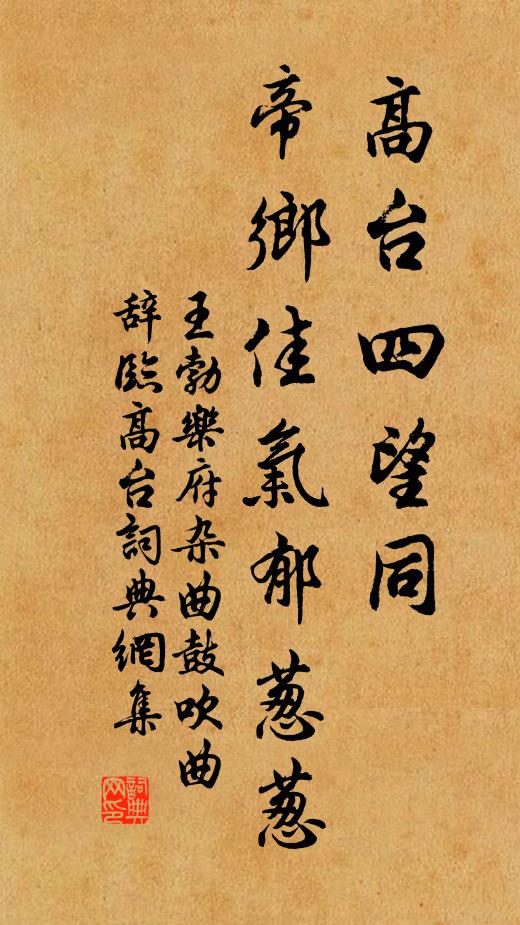 高台四望同
帝鄉佳氣郁葱葱
王勃樂府杂曲鼓吹曲
辞臨高台詞典網集
詞典网印